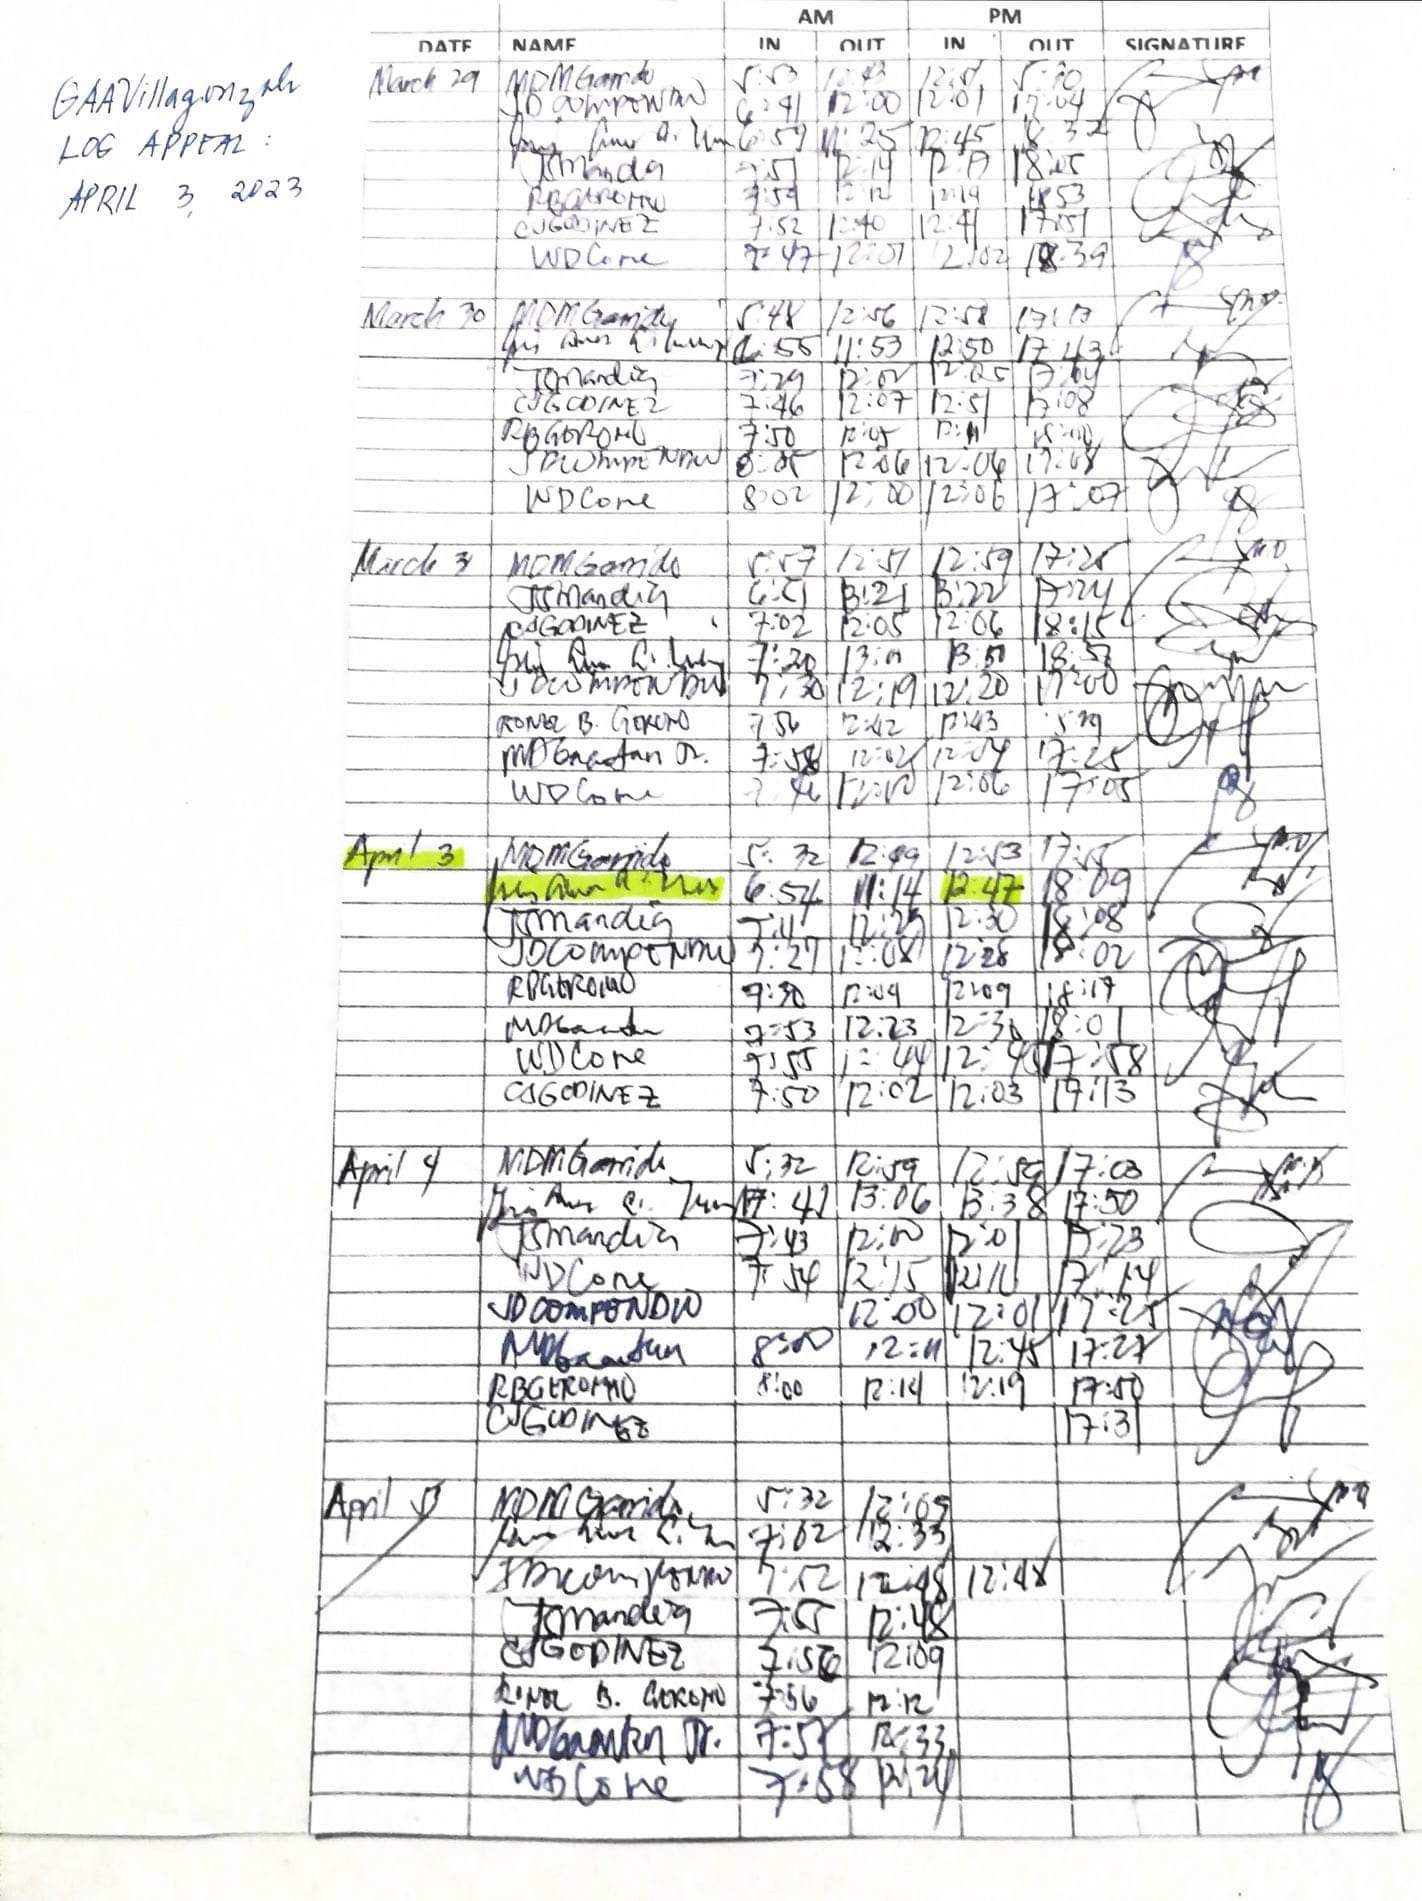 AM PM
DATE NAME IN OUT IN OUT SIGNATURE
GAAVillagonzalo
LOG APPEAL:
APRIL 3, 2023
March 29 MDMGarrido 5:53 12:43 12:51
JDCOMPENDIO 6:41 12:00 12:01 17:04
6:59 11:25 12:45 18:32
JSMandia 12:14 12:17 18:05
RBGEROMO 7:59 12:12 12:19 18:53
CJGODINEZ 7:52 12:40 12:41 17:51
WDCone 7:47 12:01 12:02 18:39
March 30 MDMGarrido 5:48 12:56 12:58 17:17
6:55 11:53 12:50 17:43
JSMandia 7:29 12:02 12:05 17:04
CJGODINEZ 7:46 12:07 12:51 17:08
RBGEROMO 7:50 12:05 12:11
JDCOMPENDIO 8:05 12:06 12:06 17:08
WDCone 8:02 12:00 12:06 17:07
March 31 MDMGarrido 5:57 12:51 12:59 17:25
JSMandia 6:51 13:21 13:22 17:24
CJGODINEZ 7:02 12:05 12:06 18:15
7:20 18:57
JDCOMPENDIO 7:30 12:19 12:20 17:00
RONEL B. GEROMO 7:56 12:42 12:43
7:58 12:02 12:04 17:25
WDCone 7:46 12:00 12:06 17:05
April 3 MDMGarrido 5:32 12:49 12:53 17:55
6:54 11:14 12:47 18:09
JSMandia 7:11 12:29 12:30 18:08
JDCOMPENDIO 7:27 12:08 12:28 18:02
RBGEROMO 7:30 12:09 12:09 18:17
7:53 12:23 12:30 18:01
WDCone 7:55 12:44 12:45 17:58
CJGODINEZ 7:50 12:02 12:03 17:13
April 4 MDMGarrido 5:32 12:59 12:59 17:03
17:41 13:06 13:38 17:50
JSMandia 7:43 12:00 12:01 17:23
WDCone 7:54 12:15 17:14
JDCOMPENDIO 12:00 12:01 17:25
8:00 12:11 12:45 17:27
RBGEROMO 8:00 12:14 12:19 17:50
CJGODINEZ 17:31
April 5 MDMGarrido 5:32 12:09
7:02 12:33
JDCompendio 7:52 12:48 12:48
JSMandia 7:55 12:48
CJGODINEZ 7:56 12:09
RONEL B. GEROMO 7:56 12:12
7:57 12:33
WDCone 7:58 12:24